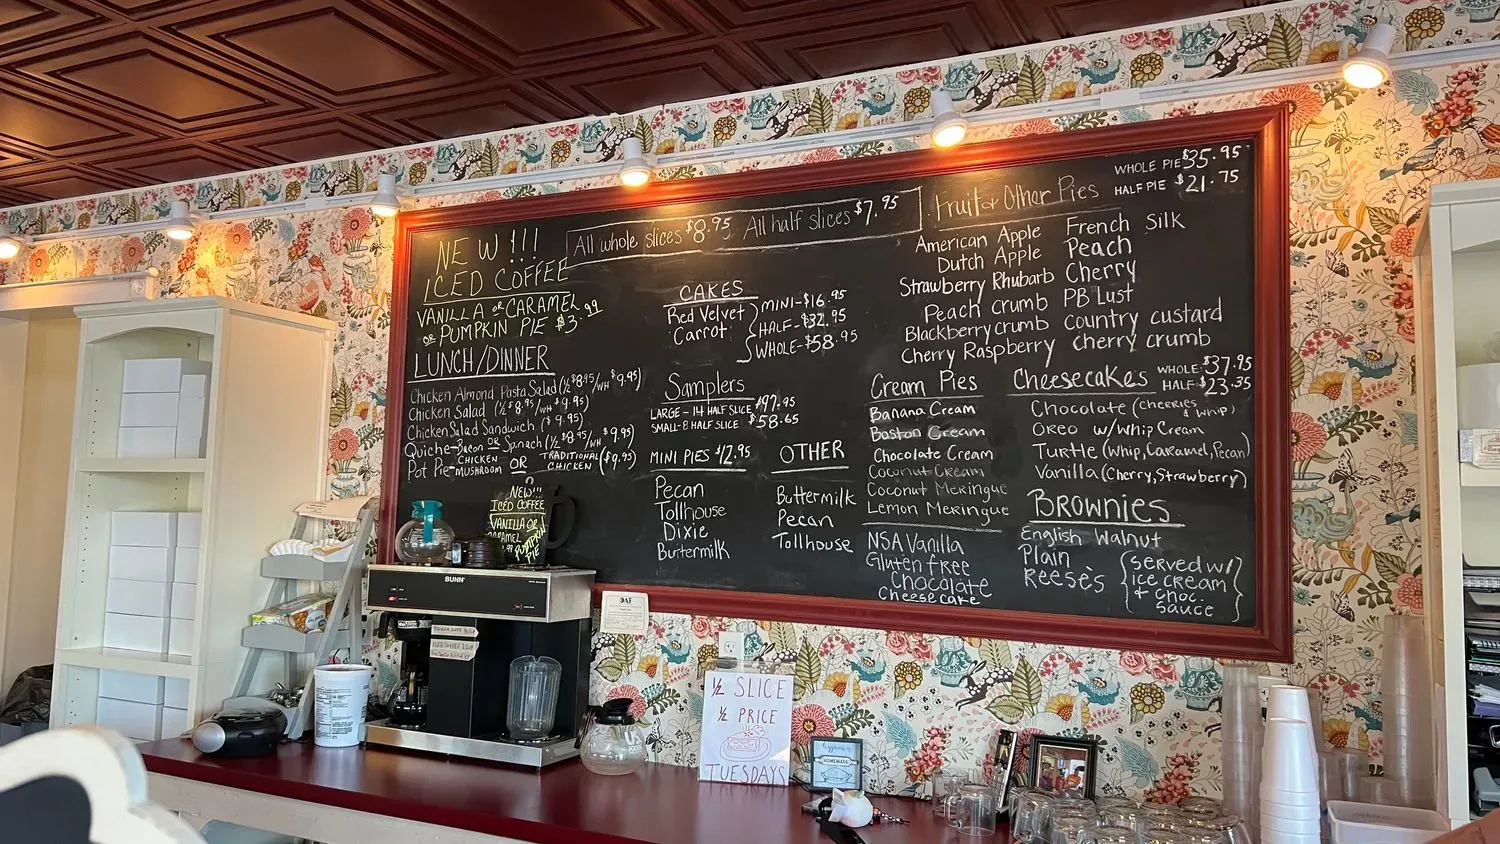 NEW!!!
ICED COFFEE
VANILLA OR CARAMEL
OR PUMPKIN PIE $3.99
LUNCH/DINNER
Chicken Almond Pasta Salad (½ $8.95/WH $9.95)
Chicken Salad (½ $8.95/WH $9.95)
Chicken Salad Sandwich ($9.95)
Quiche-Bacon OR Spinach (½ $8.95/WH $9.95)
Pot Pie-CHICKEN MUSHROOM OR TRADITIONAL CHICKEN ($9.95)
All whole slices $8.95 All half slices $7.95
CAKES
Red Velvet
Carrot
MINI-$16.95
HALF-$32.95
WHOLE-$58.95
Samplers
LARGE-14 HALF SLICE $97.95
SMALL-8 HALF SLICE $58.65
MINI PIES $12.95
Pecan
Tollhouse
Dixie
Buttermilk
OTHER
Buttermilk
Pecan
Tollhouse
Fruit & Other Pies
WHOLE PIE $35.95
HALF PIE $21.75
American Apple
Dutch Apple
Strawberry Rhubarb
Peach crumb
Blackberry crumb
Cherry Raspberry
French Silk
Peach
Cherry
PB Lust
Country custard
cherry crumb
Cream Pies
Banana Cream
Boston Cream
Chocolate Cream
Coconut Cream
Coconut Meringue
Lemon Meringue
NSA Vanilla
Gluten free
Chocolate
Cheesecake
Cheesecakes
WHOLE: $37.95
HALF: $23.35
Chocolate (Cherries & Whip)
OREO w/Whip Cream
Turtle (Whip, Caramel, Pecan)
Vanilla (Cherry, Strawberry)
BROWNIES
English Walnut
Plain
REESE'S
{served w/
ice cream
+ choc.
sauce}
NEW!!!
ICED COFFEE
VANILLA OR
CARAMEL
PUMPKIN
PIE
BUNN
½ SLICE
½ PRICE
TUESDAYS
HOMEMADE